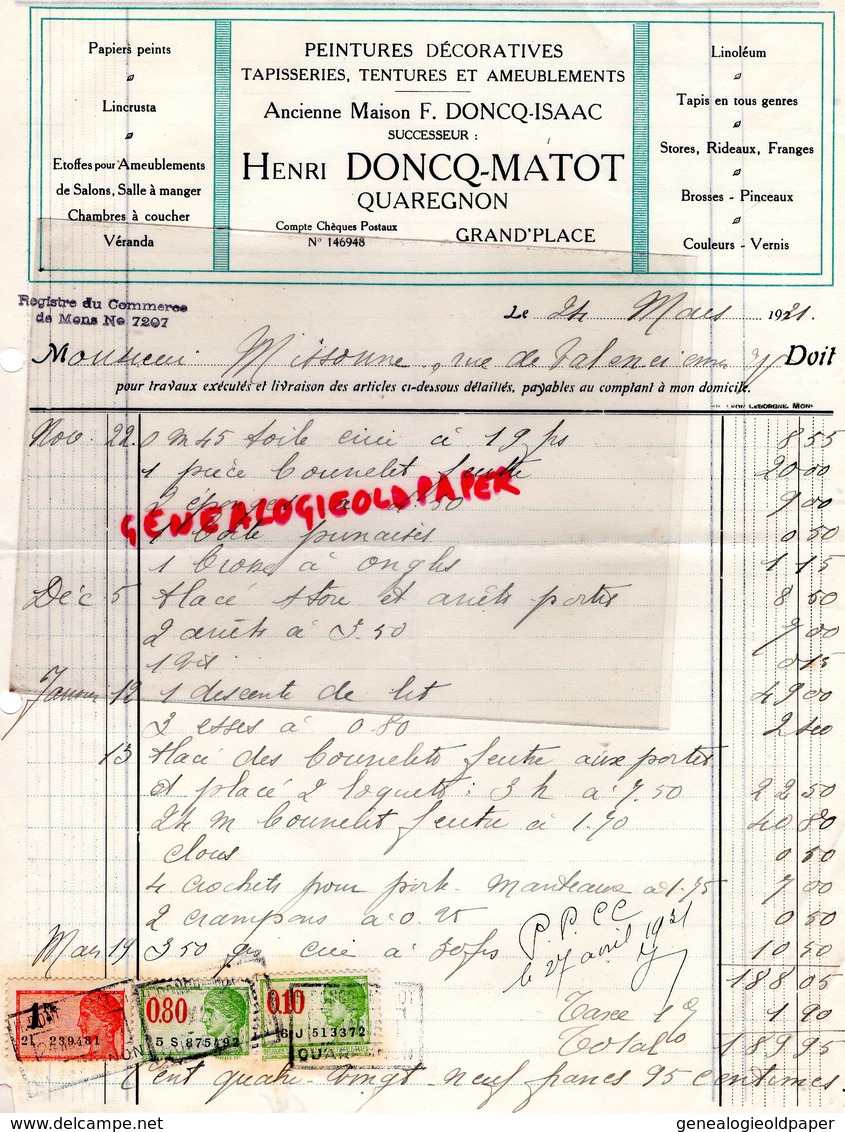 Papiers peints
Lincrusta
Etoffes pour Ameublements
de Salons, Salle à manger
Chambres à coucher
Véranda
PEINTURES DÉCORATIVES
TAPISSERIES, TENTURES ET AMEUBLEMENTS
Ancienne Maison F. DONCQ-ISAAC
SUCCESSEUR :
HENRI DONCQ-MATOT
QUAREGNON
Compte Chèques Postaux
N° 146948
GRAND'PLACE
Linoléum
Tapis en tous genres
Stores, Rideaux, Franges
Brosses - Pinceaux
Couleurs - Vernis
Registre du Commerce
de Mons No 7207
Le 24 Mars 1931.
Monsieur Missonne, rue de Valenciennes Doit
pour travaux exécutés et livraison des articles ci-dessous détaillés, payables au comptant à mon domicile.
LEBORGNE, MONS
Nov. 22. 0 m 45 toile cirée à 19 frs 8 55
1 pièce bourrelet feutre 20 00
2 éponges à 4.50 9 00
1 boite punaises 0 50
1 brosse à ongles 1 15
Déc 5 Placé store et arrêts portes 8 50
2 arrêts à 3.50 7 00
1 vis 0 15
Janvier 12 1 descente de lit 49 00
3 esses à 0.80 2 40
13 Placé des bourrelets feutre aux portes
et placé 2 loquets : 3 h à 7.50 22 50
24 m bourrelet feutre à 1.70 40 80
clous 0 50
4 crochets pour porte-manteaux à 1.75 7 00
2 crampons à 0.25 0 50
Mars 19 350 grs cire à 30 frs 10 50
P. P. CC
le 27 avril 1931
188 05
Taxe 1 % 1 90
Total 189 95
Cent quatre-vingt-neuf francs 95 centimes.
1 Fr
239481
0.80
5 S 875492
0.10
6 J 513372
QUAREGNON
GENEALOGIEOLDPAPER
genealogieoldpaper